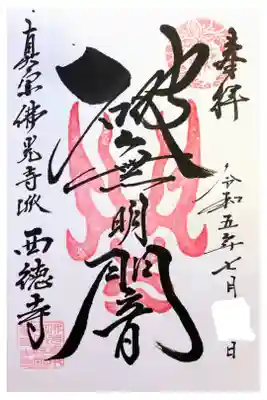 奉拝
令和五年七月 日
破無明闇
真宗佛光寺派 西徳寺